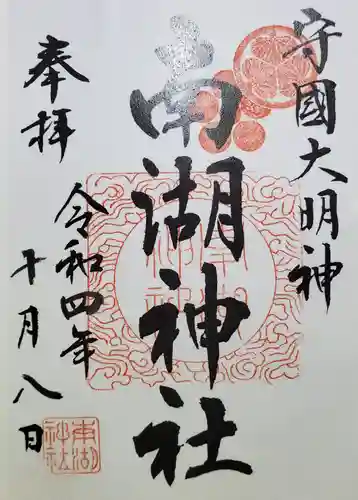 守國大明神
南湖神社
奉拝
令和四年
十月八日
南湖神社
南湖神社